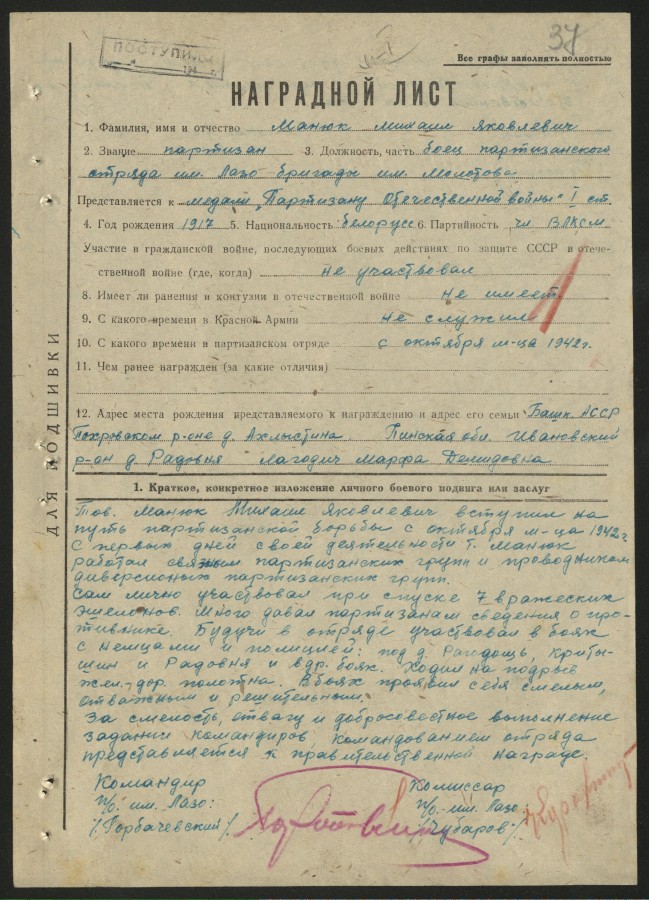 37
ПОСТУПИЛО
Все графы заполнять полностью
НАГРАДНОЙ ЛИСТ
1. Фамилия, имя и отчество Манюк Михаил Яковлевич
2. Звание партизан 3. Должность, часть боец партизанского
отряда им. Лазо бригады им. Молотова
Представляется к медали „Партизану Отечественной войны" I ст.
4. Год рождения 1917 5. Национальность белорус 6. Партийность чл ВЛКСМ
Участие в гражданской войне, последующих боевых действиях по защите СССР в отече-
ственной войне (где, когда) не участвовал
8. Имеет ли ранения и контузии в отечественной войне не имеет.
9. С какого времени в Красной Армии не служил
10. С какого времени в партизанском отряде с октября м-ца 1942 г.
11. Чем ранее награжден (за какие отличия)
12. Адрес места рождения представляемого к награждению и адрес его семьи Башк. АССР
Покровском р-оне д. Ахлыстина Пинская обл. Ивановский
р-он д. Радовня Лагодич Марфа Демидовна
ДЛЯ ПОДШИВКИ
1. Краткое, конкретное изложение личного боевого подвига или заслуг
Тов. Манюк Михаил Яковлевич вступил на
путь партизанской борьбы с октября м-ца 1942 г
С первых дней своей деятельности т. Манюк
работал связным партизанских групп и проводником
диверсионых партизанских групп.
Сам лично участвовал при спуске 7 вражеских
эшелонов. Много давал партизанам сведения о про-
тивнике. Будучи в отряде участвовал в боях
с немцами и полицией: под д. Рагодощь, Криты-
шин и Радовня и в др. боях. Ходил на подрыв
жел.-дор. полотна. В боях проявил себя смелым,
отважным и решительным.
За смелость, отвагу и добросовестное выполнение
заданий командиров командованием отряда
представляется к правительственной награде.
Командир Комиссар
п/о. им. Лазо: п/о. им. Лазо:
/Горбачевский/. /Чубаров/